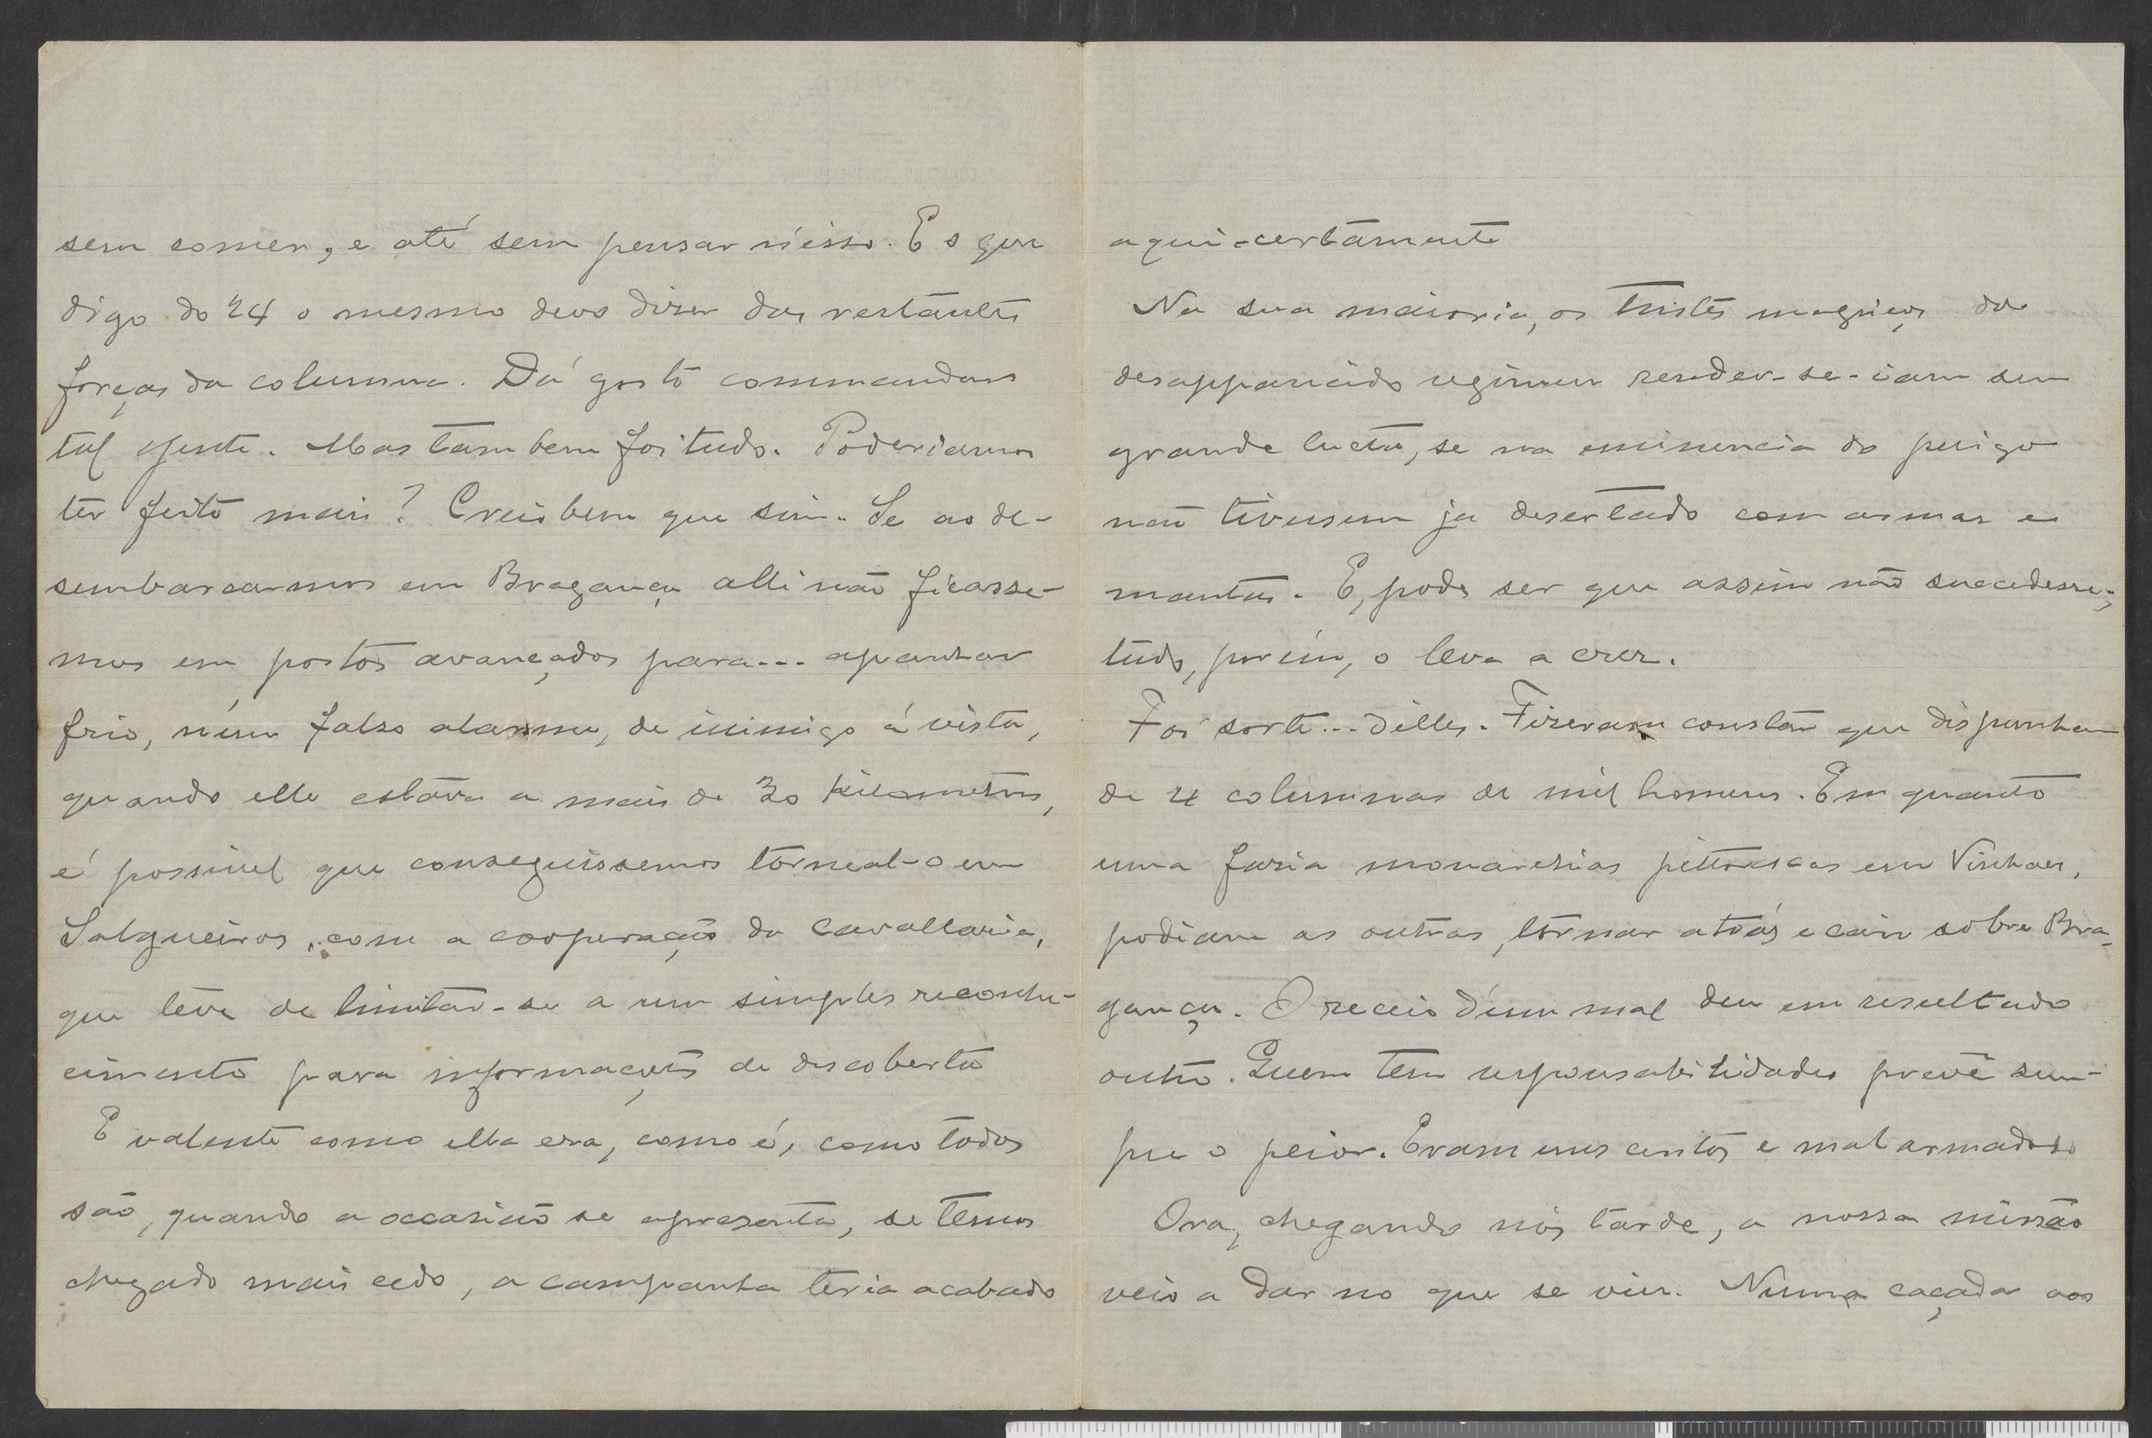 sem comer, e até sem pensar n'isso. E o que
digo do 24 o mesmo devo dizer das restantes
forças da columna. Dá gosto commandar
tal gente. Mas tambem foi tudo. Poderiamos
ter feito mais? Creio bem que sim. Se ao de-
sembarcarmos em Bragança alli não ficasse-
mos em postos avançados para... apanhar
frio, n'um falso alarme, de inimigo á vista,
quando elle estava a mais de 30 kilometros,
é possivel que conseguissemos torneal-o em
Salgueiros, com a cooperação da cavallaria,
que teve de limitar-se a um simples reconhe-
cimento para informações de descoberta
E valente como ella era, como é, como todos
são, quando a occasião se apresenta, se temos
chegado mais cedo, a campanha teria acabado
aqui certamente
Na sua maioria, os tristes magriços do
desapparecido regimen render-se-iam sem
grande lucta, se na eminencia do perigo
não tivessem ja desertado com armas e
mantas. E, pode ser que assim não succedesse;
tudo, porém, o leva a crer.
Foi sorte... d'elles. Fizeram constar que dispunham
de 4 columnas de mil homens. Em quanto
uma fazia monarchias pittorescas em Vinhaes,
podiam as outras, tornar atrás e cair sobre Bra-
gança. O receio d'um mal deu em resultado
outro. Quem tem responsabilidades prevê sem-
pre o peior. Eram uns centos e mal armados
Ora, chegando nós tarde, a nossa missão
veio a dar no que se viu. Numa caçada aos